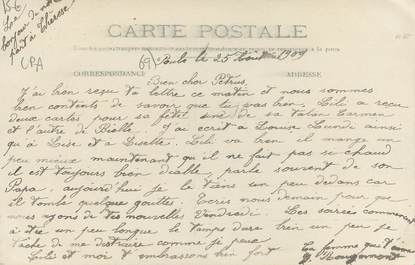 15-6
Le
bonjour de notre
part à Thérèse
CPA
CARTE POSTALE
69
le 25 Août 1909
CORRESPONDANCE
ADRESSE
Bien cher Petrus,
J'ai bien reçu ta lettre ce matin et nous sommes
bien contents de savoir que tu vas bien. Lili a reçu
deux cartes pour sa fête une de sa Tatan Carmen
et l'autre de Bielle. J'ai écrit à Louise Lunde ainsi
qu'à Lise et à Lisette. Lili va bien il mange un
peu mieux maintenant qu'il ne fait pas si chaud
il est toujours bien diable, parle souvent de son
Papa. aujourd'hui je le tiens un peu dedans car
il tombe quelques gouttes. Ecris nous demain pour que
nous ayons de tes nouvelles Vendredi. Les soirées commencent
à être un peu longue le temps dure bien un peu je
tâche de me distraire comme je peux.
Lili et moi t'embrassons bien fort
La femme que t'aime